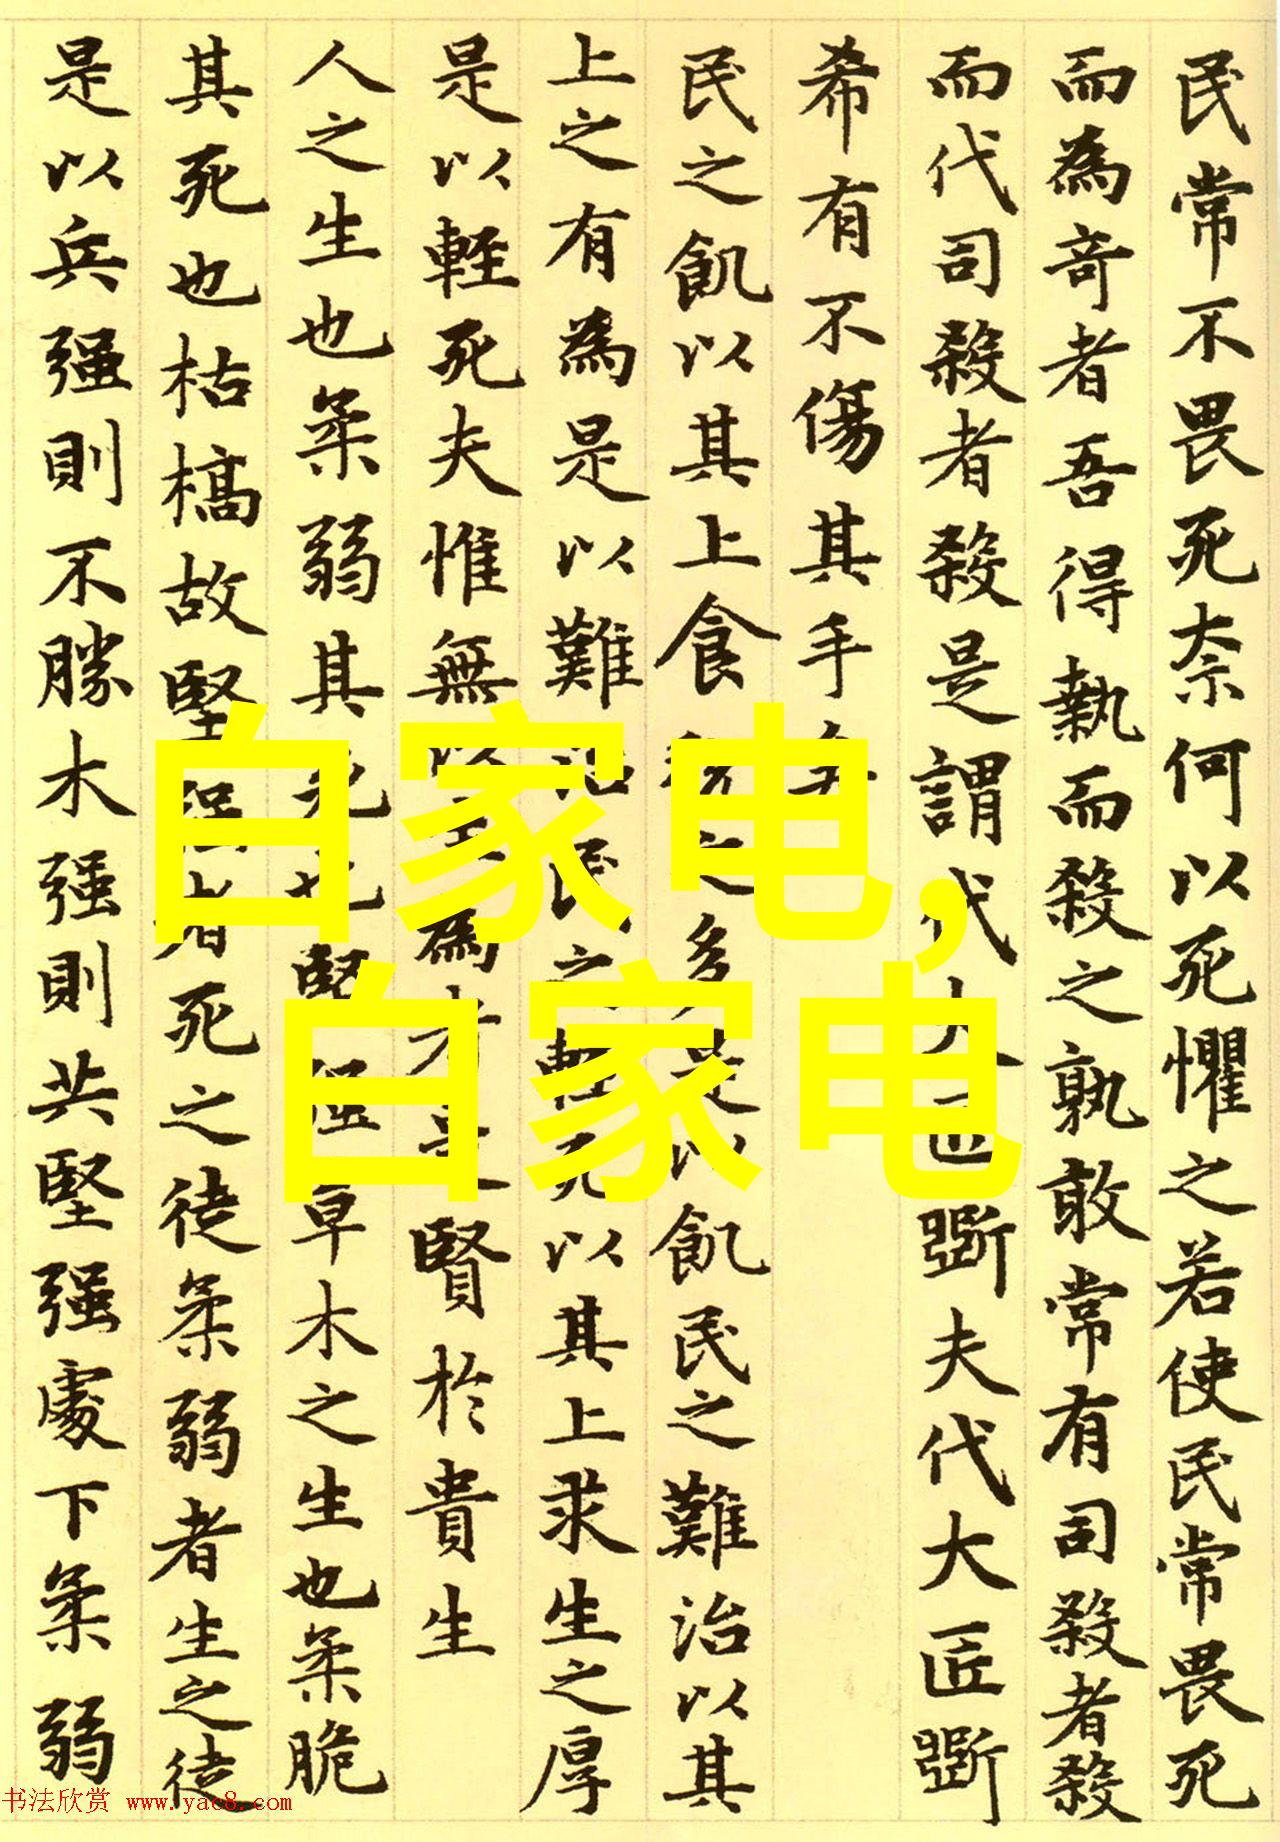 民常不畏死奈何以死懼之若使民常畏死
而為奇者吾得執而殺之孰敢常有司殺者殺
而代司殺者殺是謂代大匠斲夫代大匠斲
希有不傷其手矣
民之飢以其上食稅之多是以飢民之難治以其
上之有為是以難治民之輕死以其上求生之厚
是以輕死夫惟無以生為者是賢於貴生
人之生也柔弱其死也堅强草木之生也柔脆
其死也枯槁故堅强者死之徒柔弱者生之徒
是以兵强則不勝木强則共堅强處下柔弱
白家电,
白家电
书法欣赏 www.yac8.com